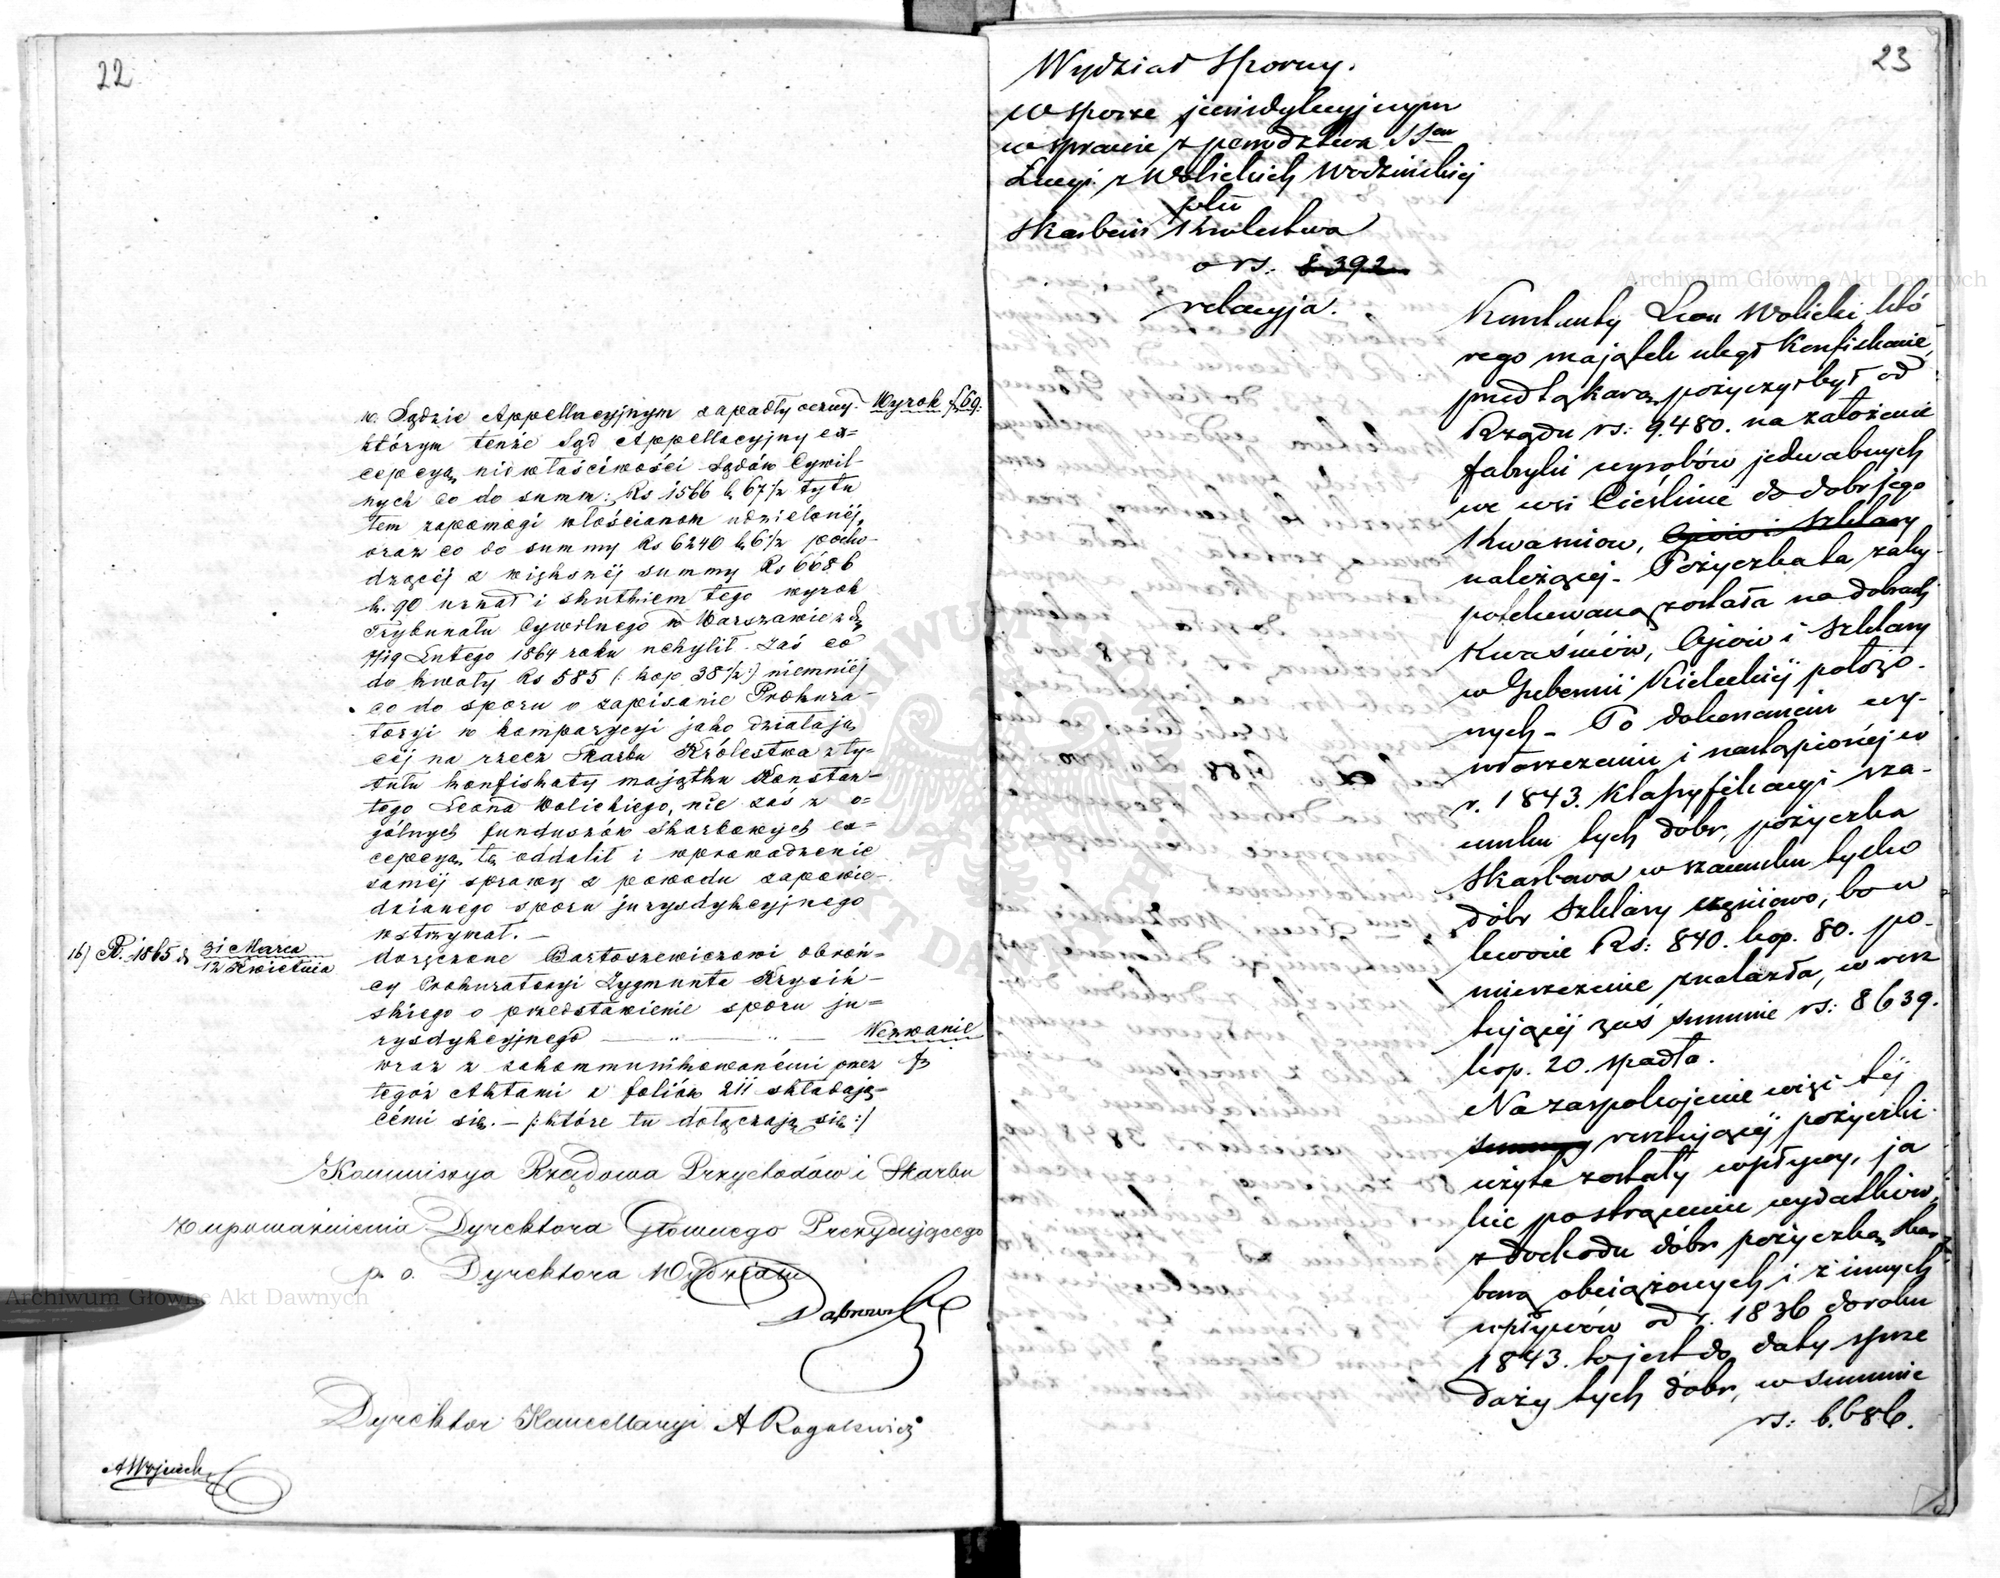 22
w Sądzie Appellacyjnym zapadły oczny. Wyrok f. 69.
którym tenże Sąd Appellacyjny ex=
cepcyą niewłaściwości Sądów Cywil-
nych co do summ: Rs 1566 k 67½ tytu
tem zapomogi włościanom udzielonéj,
oraz co do summy Rs 6240 k 6½ pocho-
dzącéj z większéj summy Rs 6686
k. 90 uznał i skutkiem tego wyrok
Trybunału Cywilnego w Warszawie z d.
7/19 Lutego 1864 roku uchylił. Zaś co
do kwoty Rs 585 (: kop 38½ :) niemniéj
co do sporu o zapisanie Prokura-
toryi w komparycyi jako działają
céj na rzecz Skarbu Królestwa z ty-
tułu konfiskaty majątku Konstan-
tego Leona Wolickiego, nie zaś z o=
gólnych funduszów Skarbowych ex=
cepcyą tę oddalił i wprowadzenie
saméj sprawy z powodu zapowie-
dzianego sporu jurysdykcyjnego
wstrzymał. —
16) R. 1865 d. 31 Marca / 12 Kwietnia
doręczone Bartoszewiczowi obroń=
cy Prokuratoryi Zygmunta Krysiń-
skiego o przedstawienie sporu ju=
rysdykcyjnego — „ — „ — Wezwanie
wraz z zakommunikowanémi przez
tegoż Aktami z foliów 211 składają-
cémi się. — /: które tu dołączają się :/
Kommissya Rządowa Przychodów i Skarbu
z upoważnienia Dyrektora Głównego Prezydującego
p. o. Dyrektora Wydziału
Dąbrowski
Dyrektor Kancellaryi A Rogalewicz
A Wojciech
23
Wydział Sporny.
W sporze jurisdykcyjnym
w sprawie z powództwa SSów
Łucyi z Wolickich Wodzińskiéj
ptu
Skarbowi Królestwa
o rs. 8392
relacyja.
Konstanty Leon Wolicki któ
rego majątek uległ Konfiskacie,
przed tą karą pożyczył był od
Rządu rs: 9.480. na założenie
fabryki wyrobów jedwabnych
we wsi Cieślinie do dóbr jego
Kwaśniow, Ojców i Szklary
należącéj. Pożyczka ta zahy-
potekowaną została na dobrach
Kwaśniów, Ojców i Szklary
w Gubernii Kieleckiéj położo-
nych. Po dokonaniu wy-
właszczeniu i nastąpionéj w
r. 1843. Klasyfikacyi sza-
cunku tych dóbr, pożyczka
Skarbowa w szacunku tylko
dóbr Szklary częściowo, bo w
kwocie Rs: 840. kop. 80. po-
mieszczenie znalazła, w resz
tującéj zaś summie rs: 8639.
kop. 20. spadła.
Na zaspokojenie więc téj
summy resztującéj pożyczki
użyte zostały wpływy, ja
kie po strąceniu wydatków,
z dochodu dóbr pożyczką Skar-
bową obciążonych i z innych
wpływów od r. 1836 do roku
1843. to jest do daty sprze
daży tych dóbr, w summie
rs: 6.686.
Archiwum Główne Akt Dawnych
Archiwum Główne Akt Dawnych